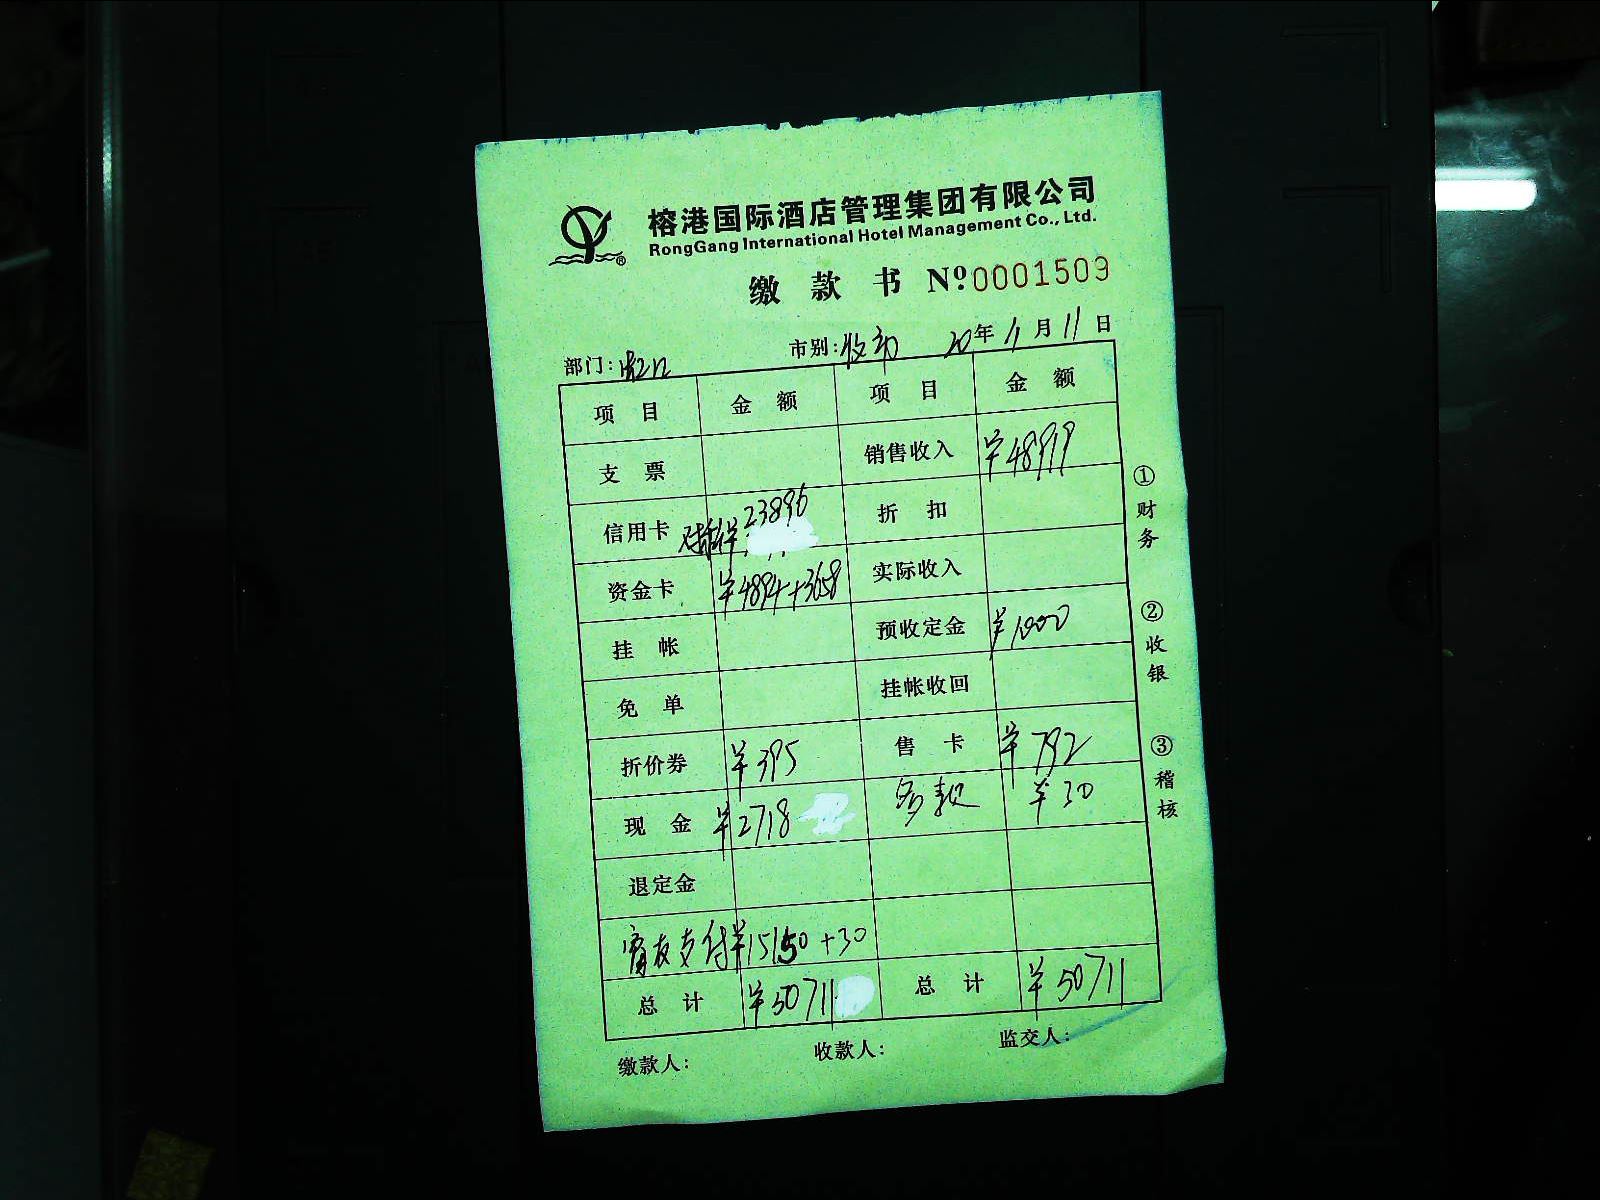 榕港国际酒店管理集团有限公司
RongGang International Hotel Management Co., Ltd.
缴款书 № 0001509
部门: 市别:收市 20年11月11日
项目 金额 项目 金额
支票 销售收入 ¥48919
信用卡 ¥23896 折扣
资金卡 ¥4894+3658 实际收入
挂帐 预收定金 ¥1000
免单 挂帐收回
折价券 ¥395 售卡 ¥792
现金 ¥2718 多款 ¥30
退定金
支付 ¥15150+30
总计 ¥50711 总计 ¥50711
缴款人: 收款人: 监交人:
①财务
②收银
③稽核